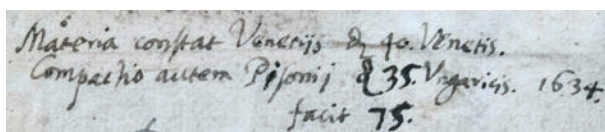 Materia constat Venetijs ₰ 40. Venetis.
Compactio autem Pisonij ₰ 35. Vngaricis. 1634.
facit 75.